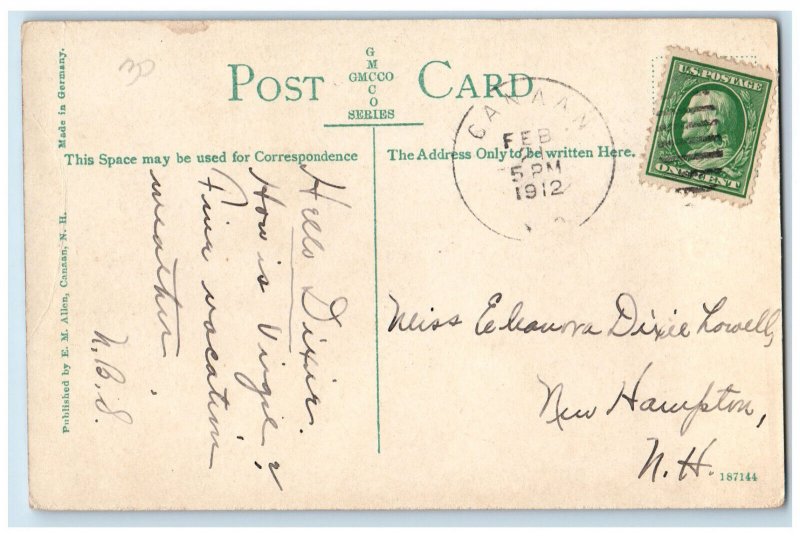 Made in Germany.
Published by E. M. Allen, Canaan, N. H.
POST CARD
GMCCO
GMCCO
SERIES
This Space may be used for Correspondence
The Address Only to be written Here.
CANAAN
FEB
5 PM
1912
U.S. POSTAGE
ONE CENT
Hello Dixie.
How is Virgil?
Fine vacation
weather.
N.B.S.
Miss Eleanora Dixie Lowell,
New Hampton,
N.H.
187144